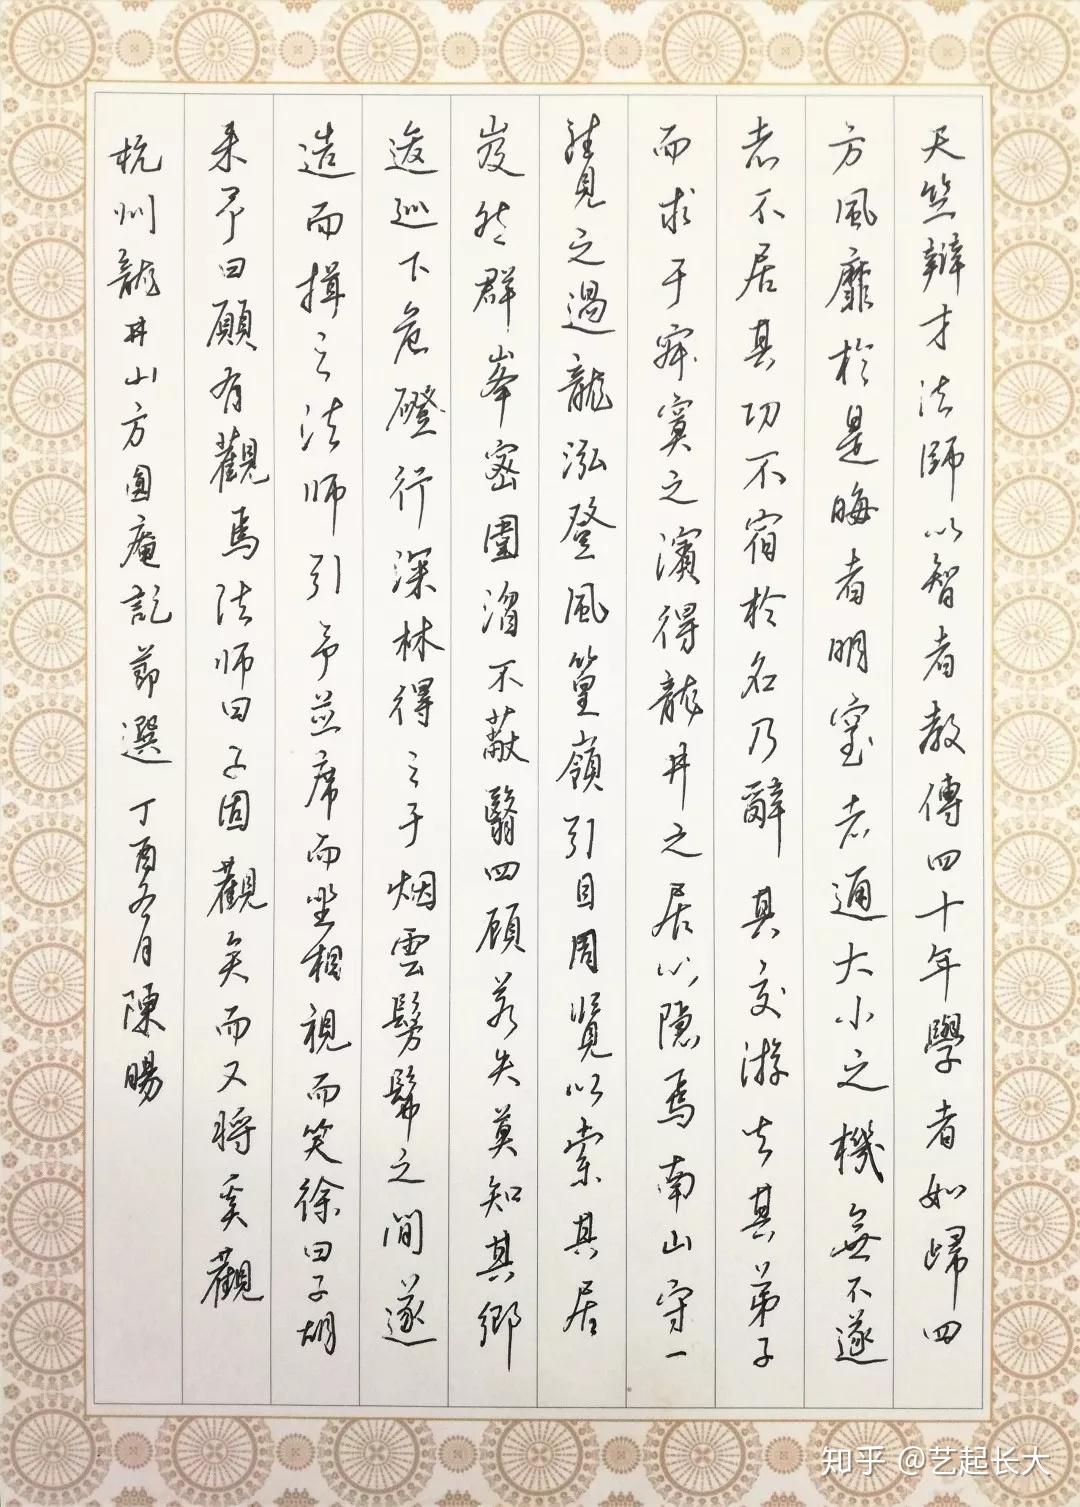 天竺辯才法師以智者教傳四十年學者如歸四
方風靡於是晦者明窒者通大小之機無不遂
者不居其功不宿於名乃辭其交游去其弟子
而求于寂寞之濱得龍井之居以隱焉南山守一
往見之過龍泓登風篁嶺引目周覽以索其居
岌然群峯密圍溶不蔽翳四顧若失莫知其鄉
逡巡下危磴行深林得之于烟雲髣髴之間遂
造而揖之法師引予並席而坐相視而笑徐曰子胡
來予曰願有觀焉法師曰子固觀矣而又將奚觀
杭州龍井山方圓庵記節選 丁酉冬月 陳暘
知乎 @艺起长大